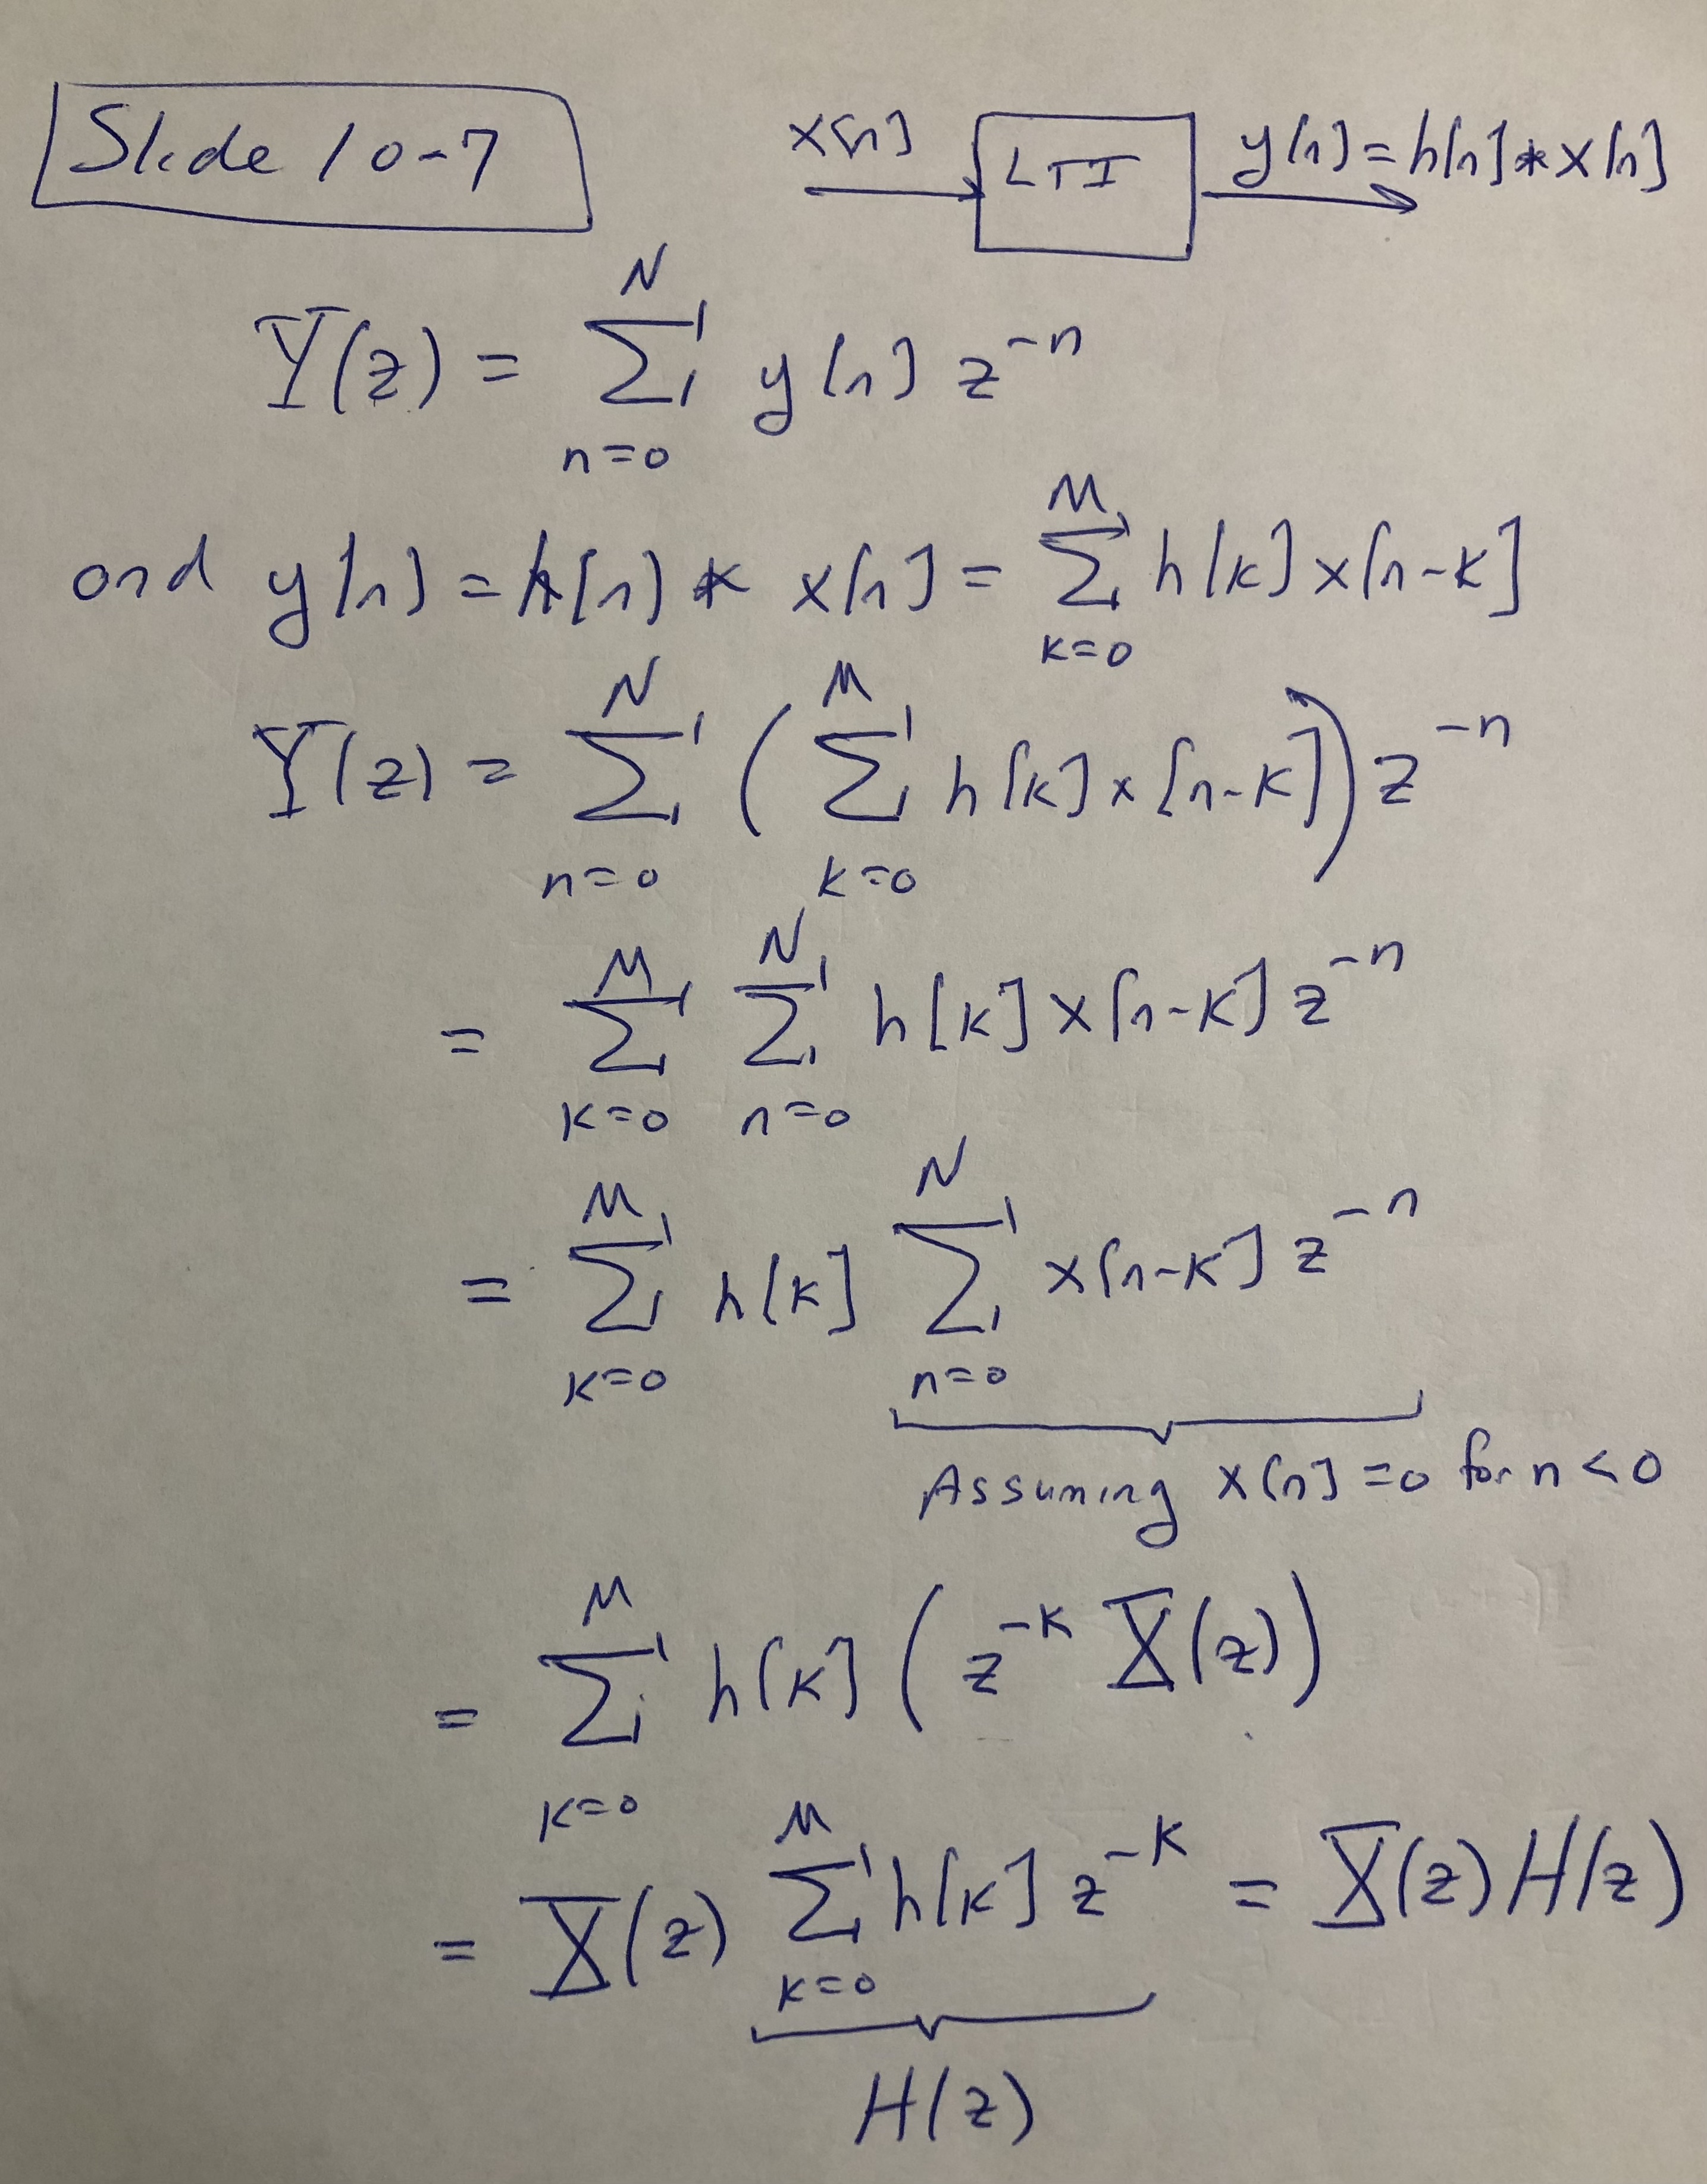 Slide 10-7
x[n] LTI y[n]=h[n]*x[n]
Y(z) = \sum_{n=0}^{N} y[n] z^{-n}
and y[n] = h[n] * x[n] = \sum_{k=0}^{M} h[k] x[n-k]
Y(z) = \sum_{n=0}^{N} ( \sum_{k=0}^{M} h[k] x[n-k] ) z^{-n}
= \sum_{k=0}^{M} \sum_{n=0}^{N} h[k] x[n-k] z^{-n}
= \sum_{k=0}^{M} h[k] \sum_{n=0}^{N} x[n-k] z^{-n}
Assuming x[n]=0 for n<0
= \sum_{k=0}^{M} h[k] ( z^{-k} X(z) )
= X(z) \sum_{k=0}^{M} h[k] z^{-k} = X(z) H(z)
H(z)